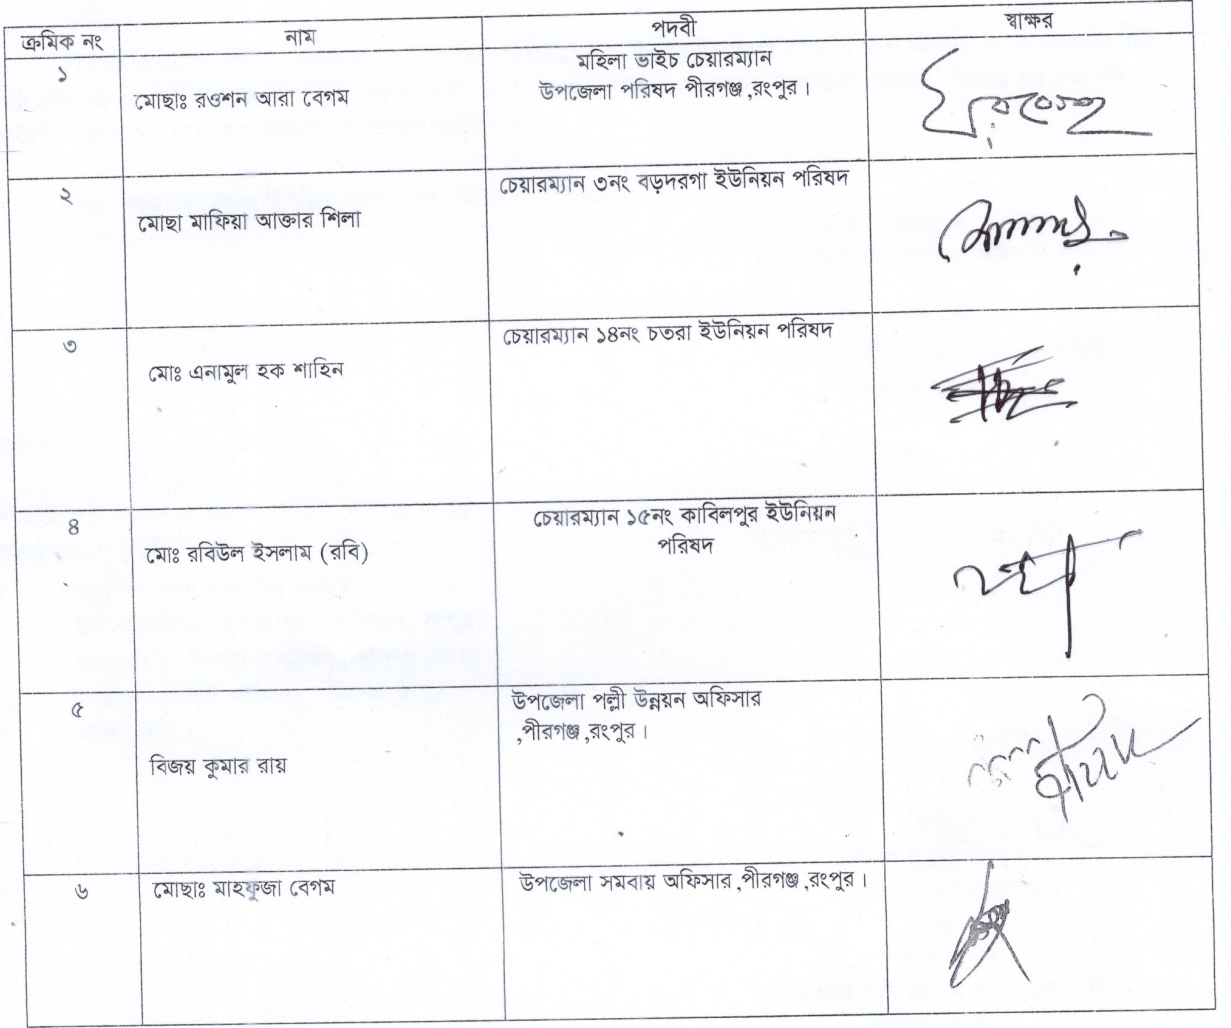 ক্রমিক নং নাম পদবী স্বাক্ষর
১ মোছাঃ রওশন আরা বেগম মহিলা ভাইচ চেয়ারম্যান
উপজেলা পরিষদ পীরগঞ্জ ,রংপুর ।
২ মোছা মাফিয়া আক্তার শিলা চেয়ারম্যান ৩নং বড়দরগা ইউনিয়ন পরিষদ
৩ মোঃ এনামুল হক শাহিন চেয়ারম্যান ১৪নং চতরা ইউনিয়ন পরিষদ
৪ মোঃ রবিউল ইসলাম (রবি) চেয়ারম্যান ১৫নং কাবিলপুর ইউনিয়ন
পরিষদ
৫ বিজয় কুমার রায় উপজেলা পল্লী উন্নয়ন অফিসার
,পীরগঞ্জ ,রংপুর ।
৬ মোছাঃ মাহফুজা বেগম উপজেলা সমবায় অফিসার ,পীরগঞ্জ ,রংপুর ।